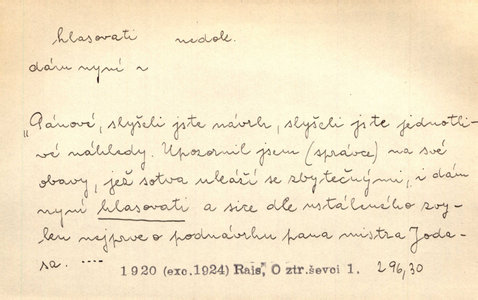 hlasovati nedok.
dám nyní ~
„Pánové, slyšeli jste návrh, slyšeli jste jednotli-
vé náhledy. Upozornil jsem (správce) na své
obavy, jež sotva ukáží se zbytečnými, i dám
nyní hlasovati a sice dle ustáleného zvy-
ku nejprve o podnávrhu pana mistra Joda-
sa. ....
1920 (exc.1924) Rais, O ztr.ševci 1. 296,30